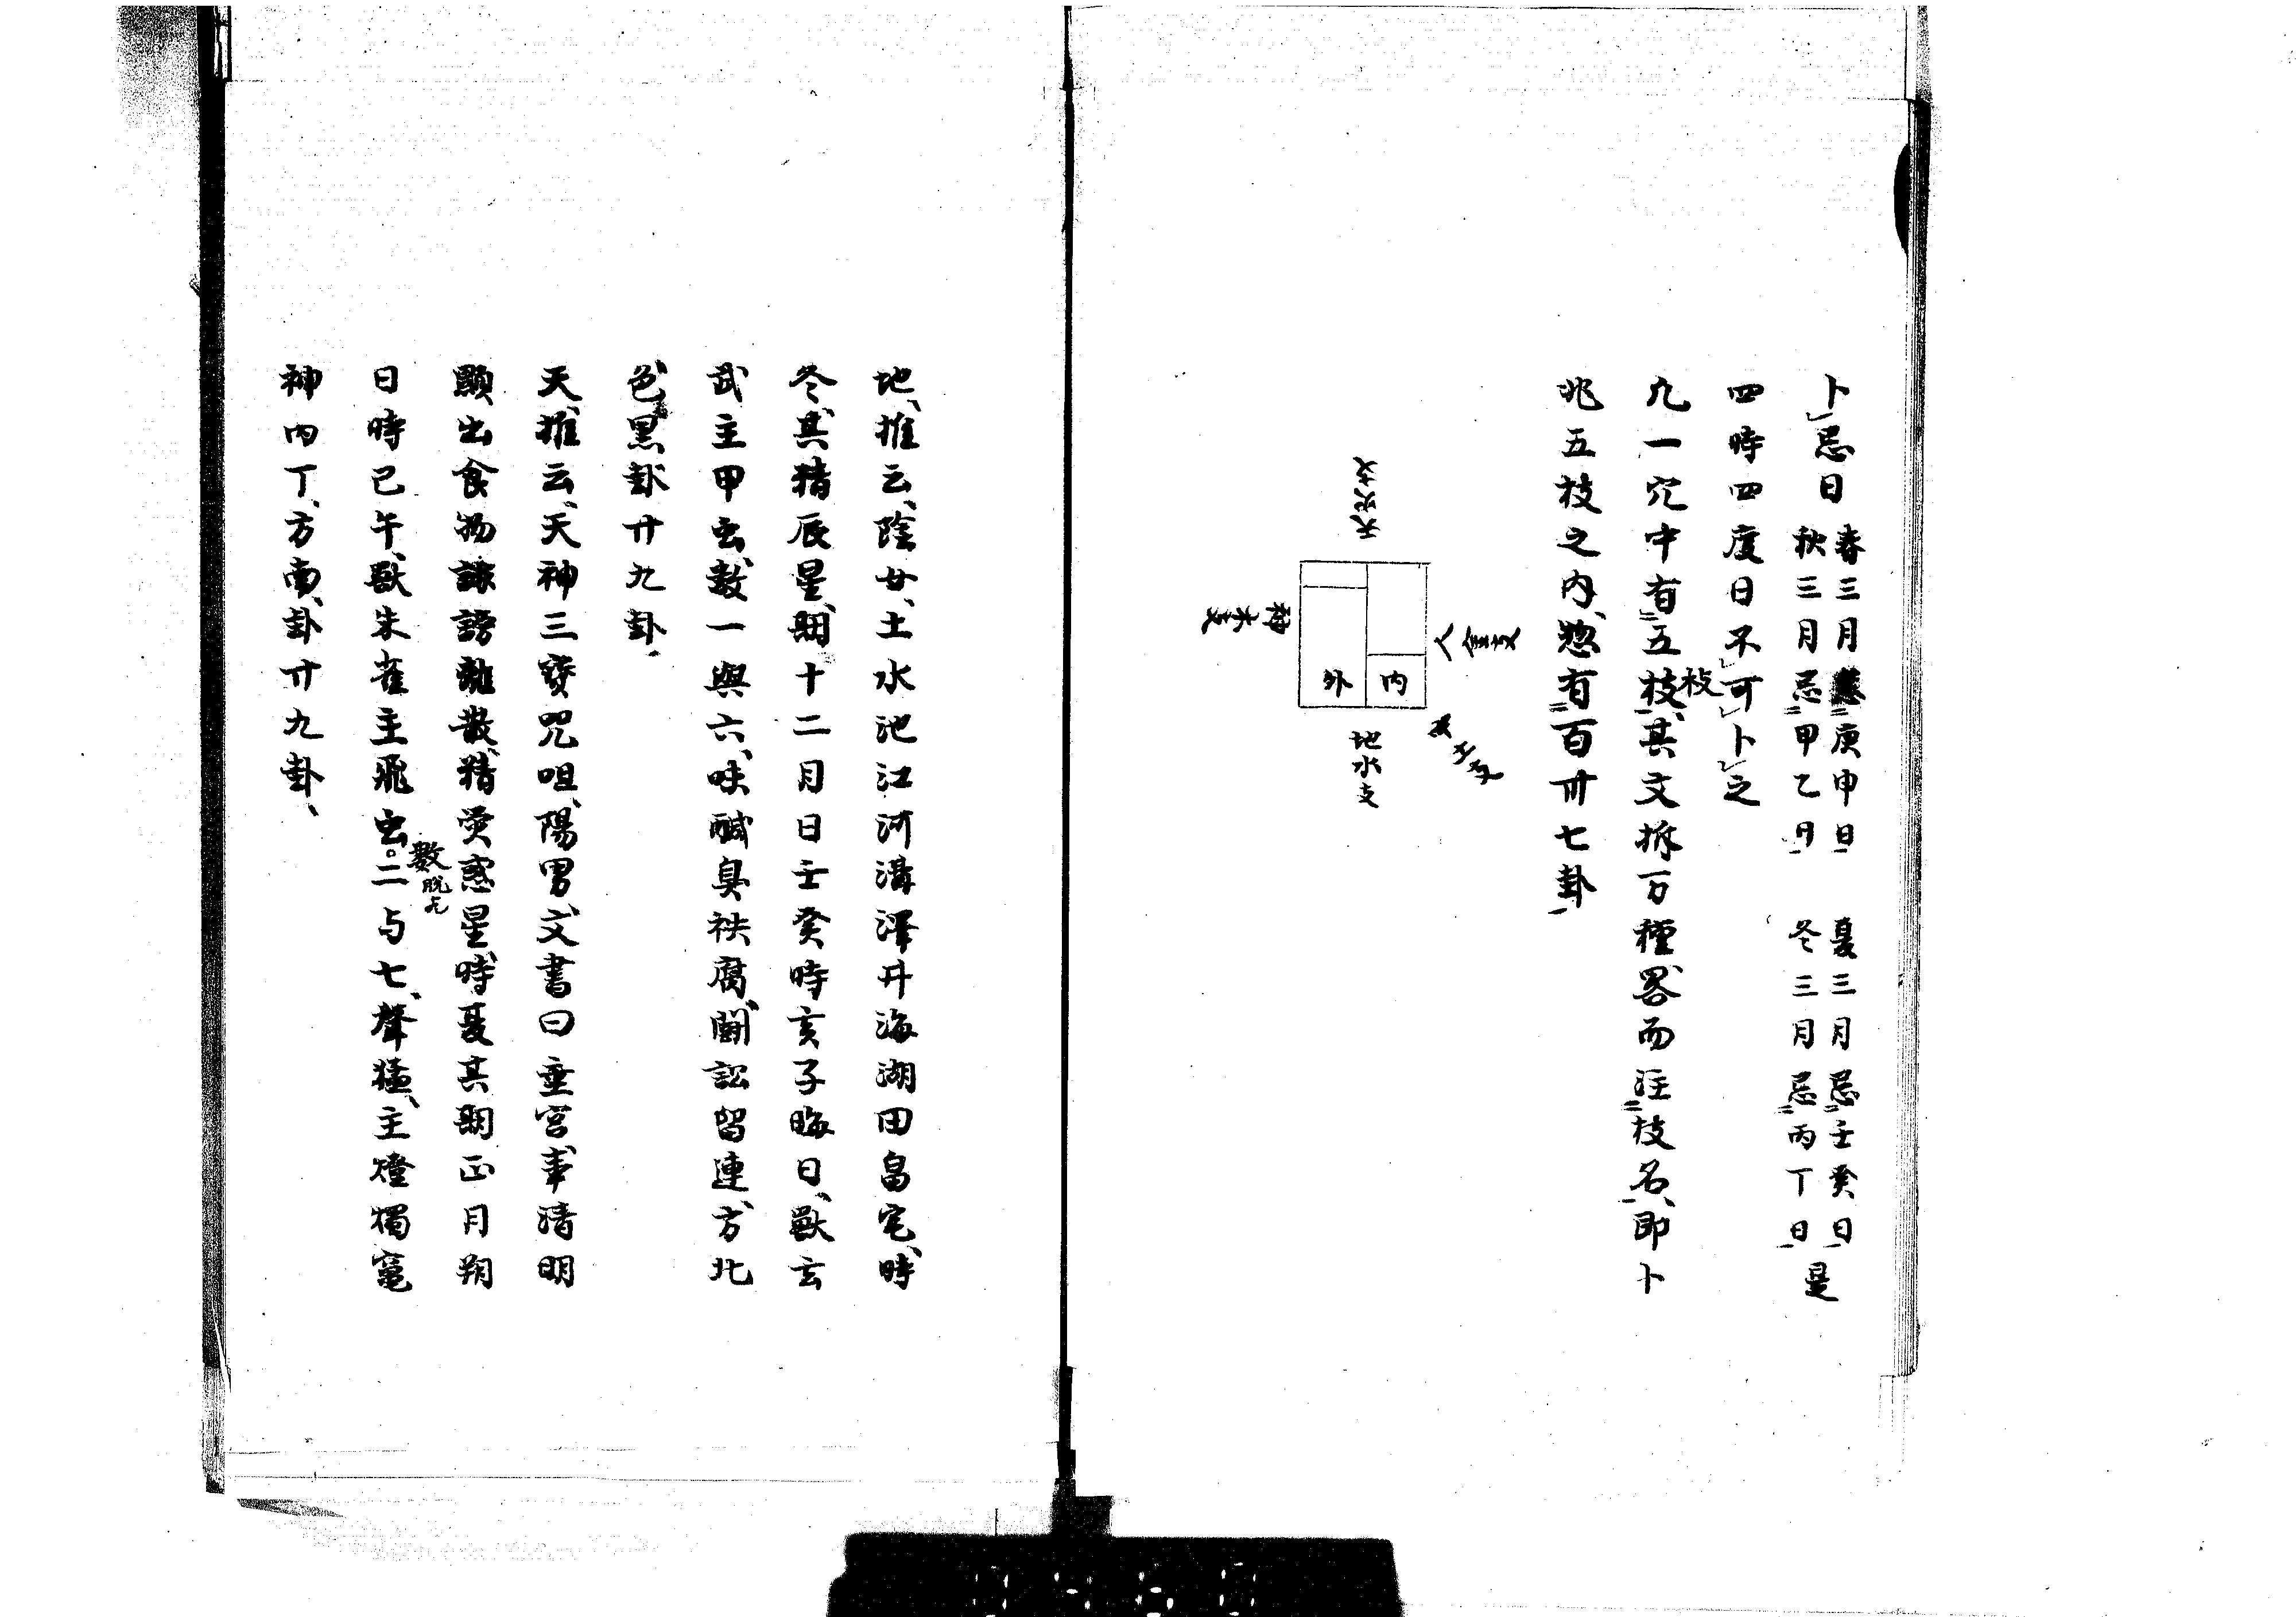 卜忌日
春三月忌庚申日 夏三月忌壬癸日
秋三月忌甲乙日 冬三月忌丙丁日 是
四時四度日不可卜之
凡一穴中有五枝其文拆万種畧而注枝名、即卜
枝
兆五枝之内、惣有百卌七卦
天火支
神木支
人金支
外
内
地水支
地、推云、陰女、土水池江河溝澤井海湖田畠宅、時
冬、其精辰星、期十二月日壬癸時亥子晦日、獸玄
武主甲虫、数一與六、味醎臭袟腐、鬪訟留連、方北
色黒卦廿九卦、
天、推云、天神三寳咒咀、陽男、文書曰垂宮、事清明
顯出食物諑謗離散、精熒惑星、時夏其期正月朔
日時巳午、獸朱雀主飛虫。二与七、聲猛、主燈獨竈
數脱尢
神内丁、方南、卦廿九卦、